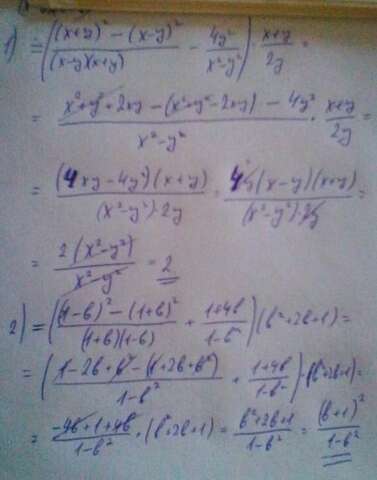 1) = ( ((x+y)² - (x-y)²) / ((x-y)(x+y)) - 4y² / (x²-y²) ) · (x+y) / 2y =
= (x²+y²+2xy - (x²+y²-2xy) - 4y²) / (x²-y²) · (x+y) / 2y =
= (4xy-4y²)(x+y) / ((x²-y²)·2y) = 4y(x-y)(x+y) / ((x²-y²)·2y) =
= 2(x²-y²) / (x²-y²) = 2
2) = ( ((1-b)² - (1+b)²) / ((1+b)(1-b)) + (1+4b) / (1-b²) ) (b²+2b+1) =
= ( (1-2b+b² - (1+2b+b²)) / (1-b²) + (1+4b) / (1-b²) ) · (b²+2b+1) =
= (-4b+1+4b) / (1-b²) · (b²+2b+1) = (b²+2b+1) / (1-b²) = (b+1)² / (1-b²)